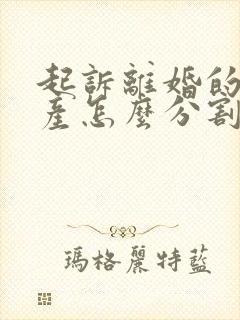 起訴離婚的
產怎麼分割
瑪格麗特藍